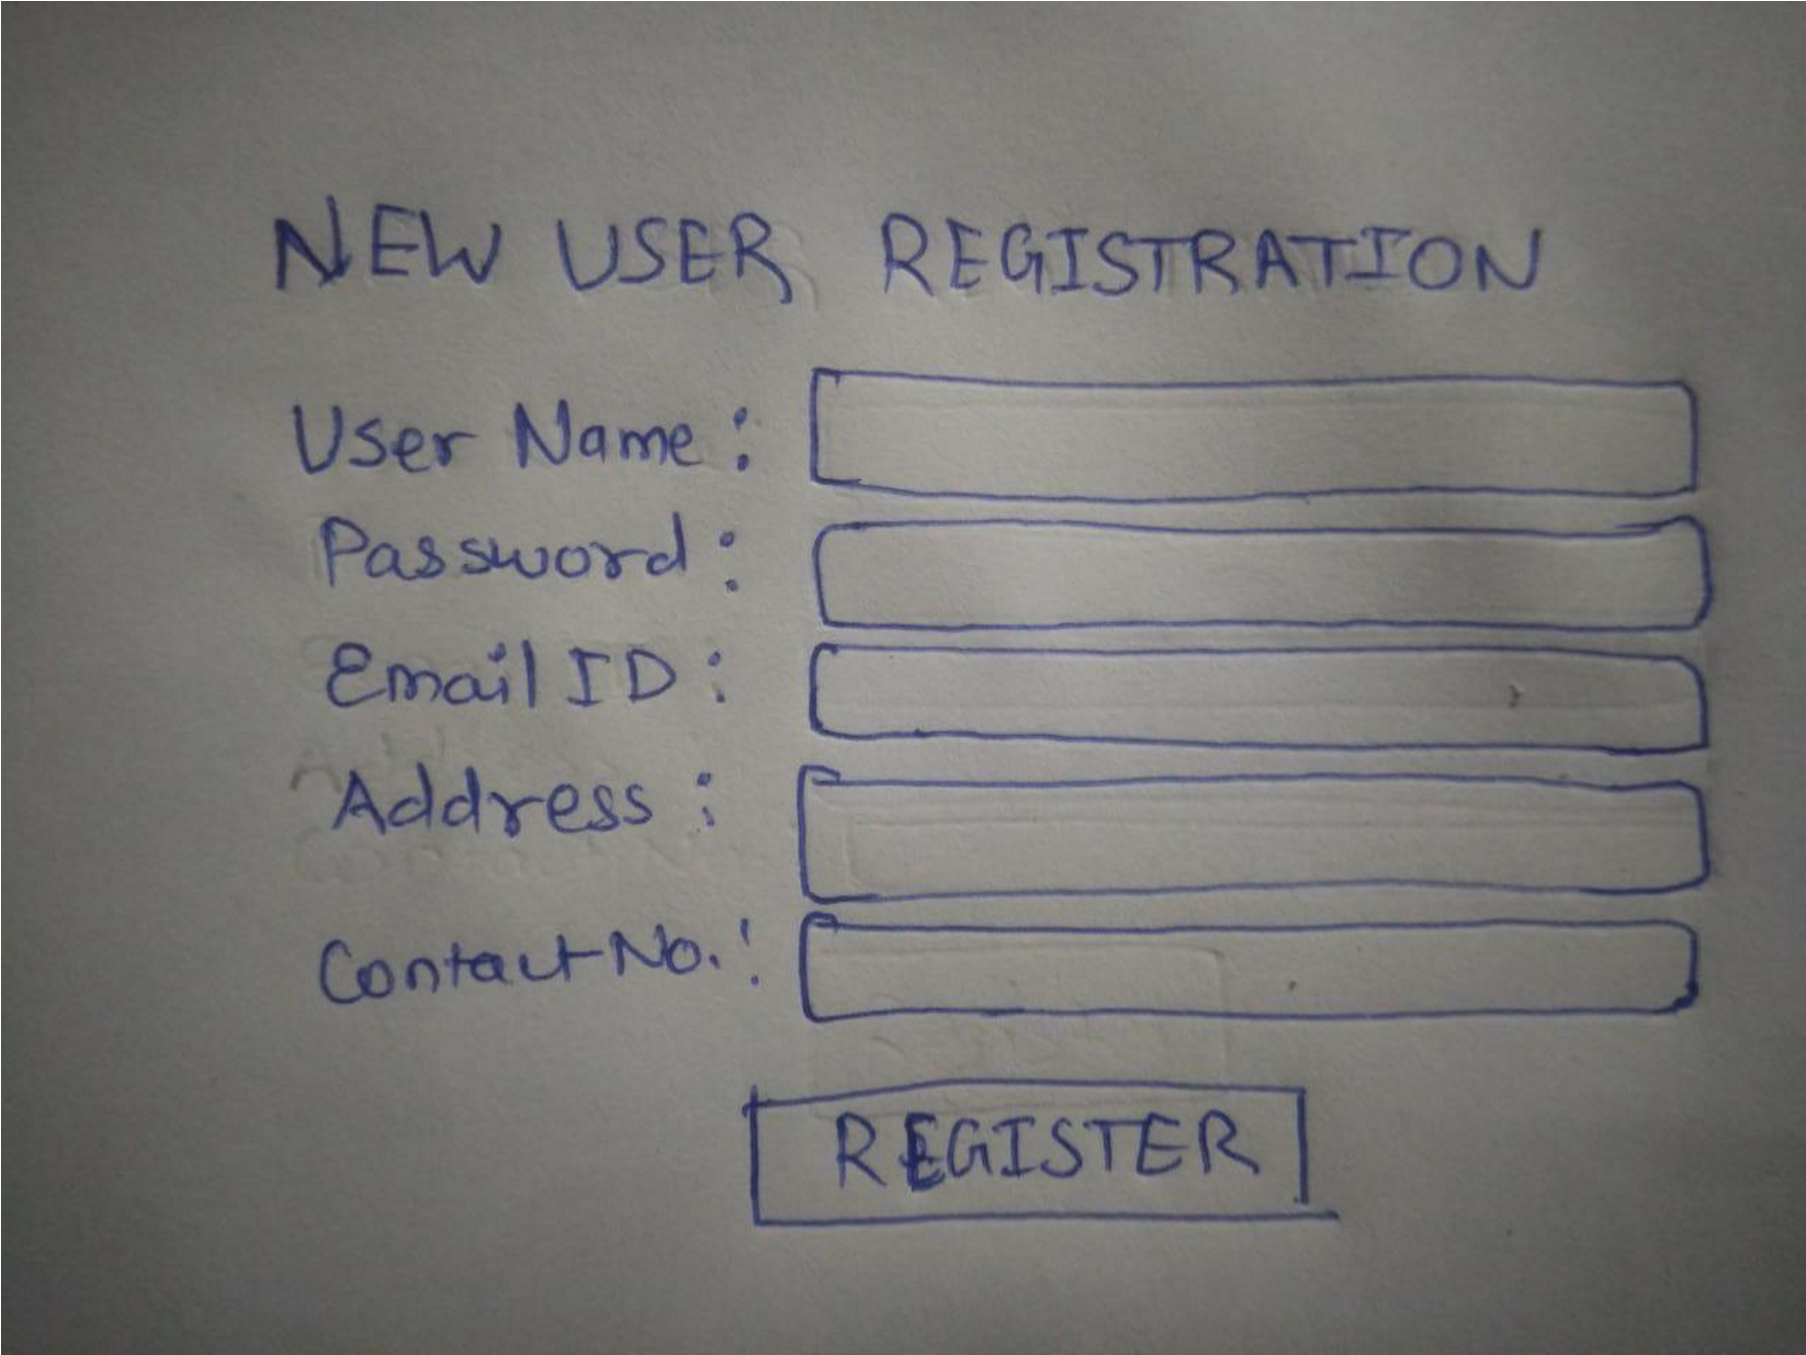 NEW USER REGISTRATION
User Name :
Password :
Email ID :
Address :
Contact No. :
REGISTER